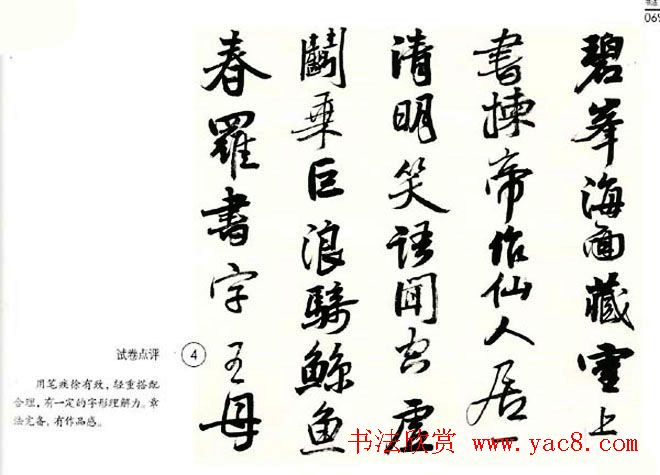 069
碧峯海面藏靈上
書揀帝作仙人居
清明笑語聞空虛
鬭乘巨浪騎鯨魚
春羅書字王母
试卷点评 ④
用笔疾徐有致，轻重搭配
合理，有一定的字形理解力。章
法完备，有作品感。
书法欣赏 www.yac8.com